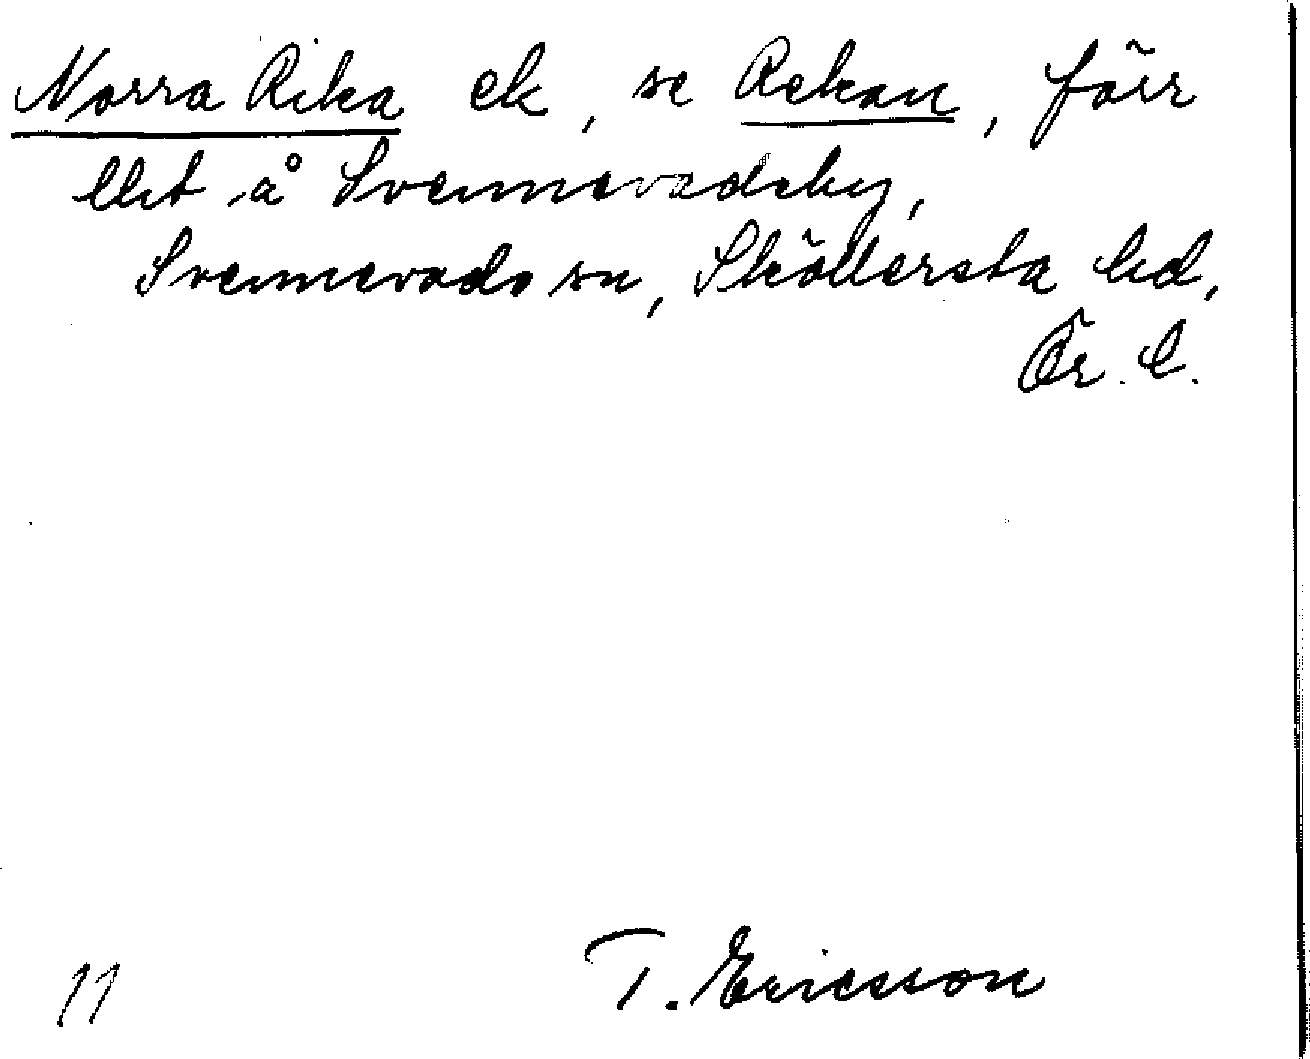 Norra Rika ek, se Rekan, förr
lht å Svennevadsby,
Svennevads sn, Sköllersta hd,
Ör. l.
11 T. Ericsson